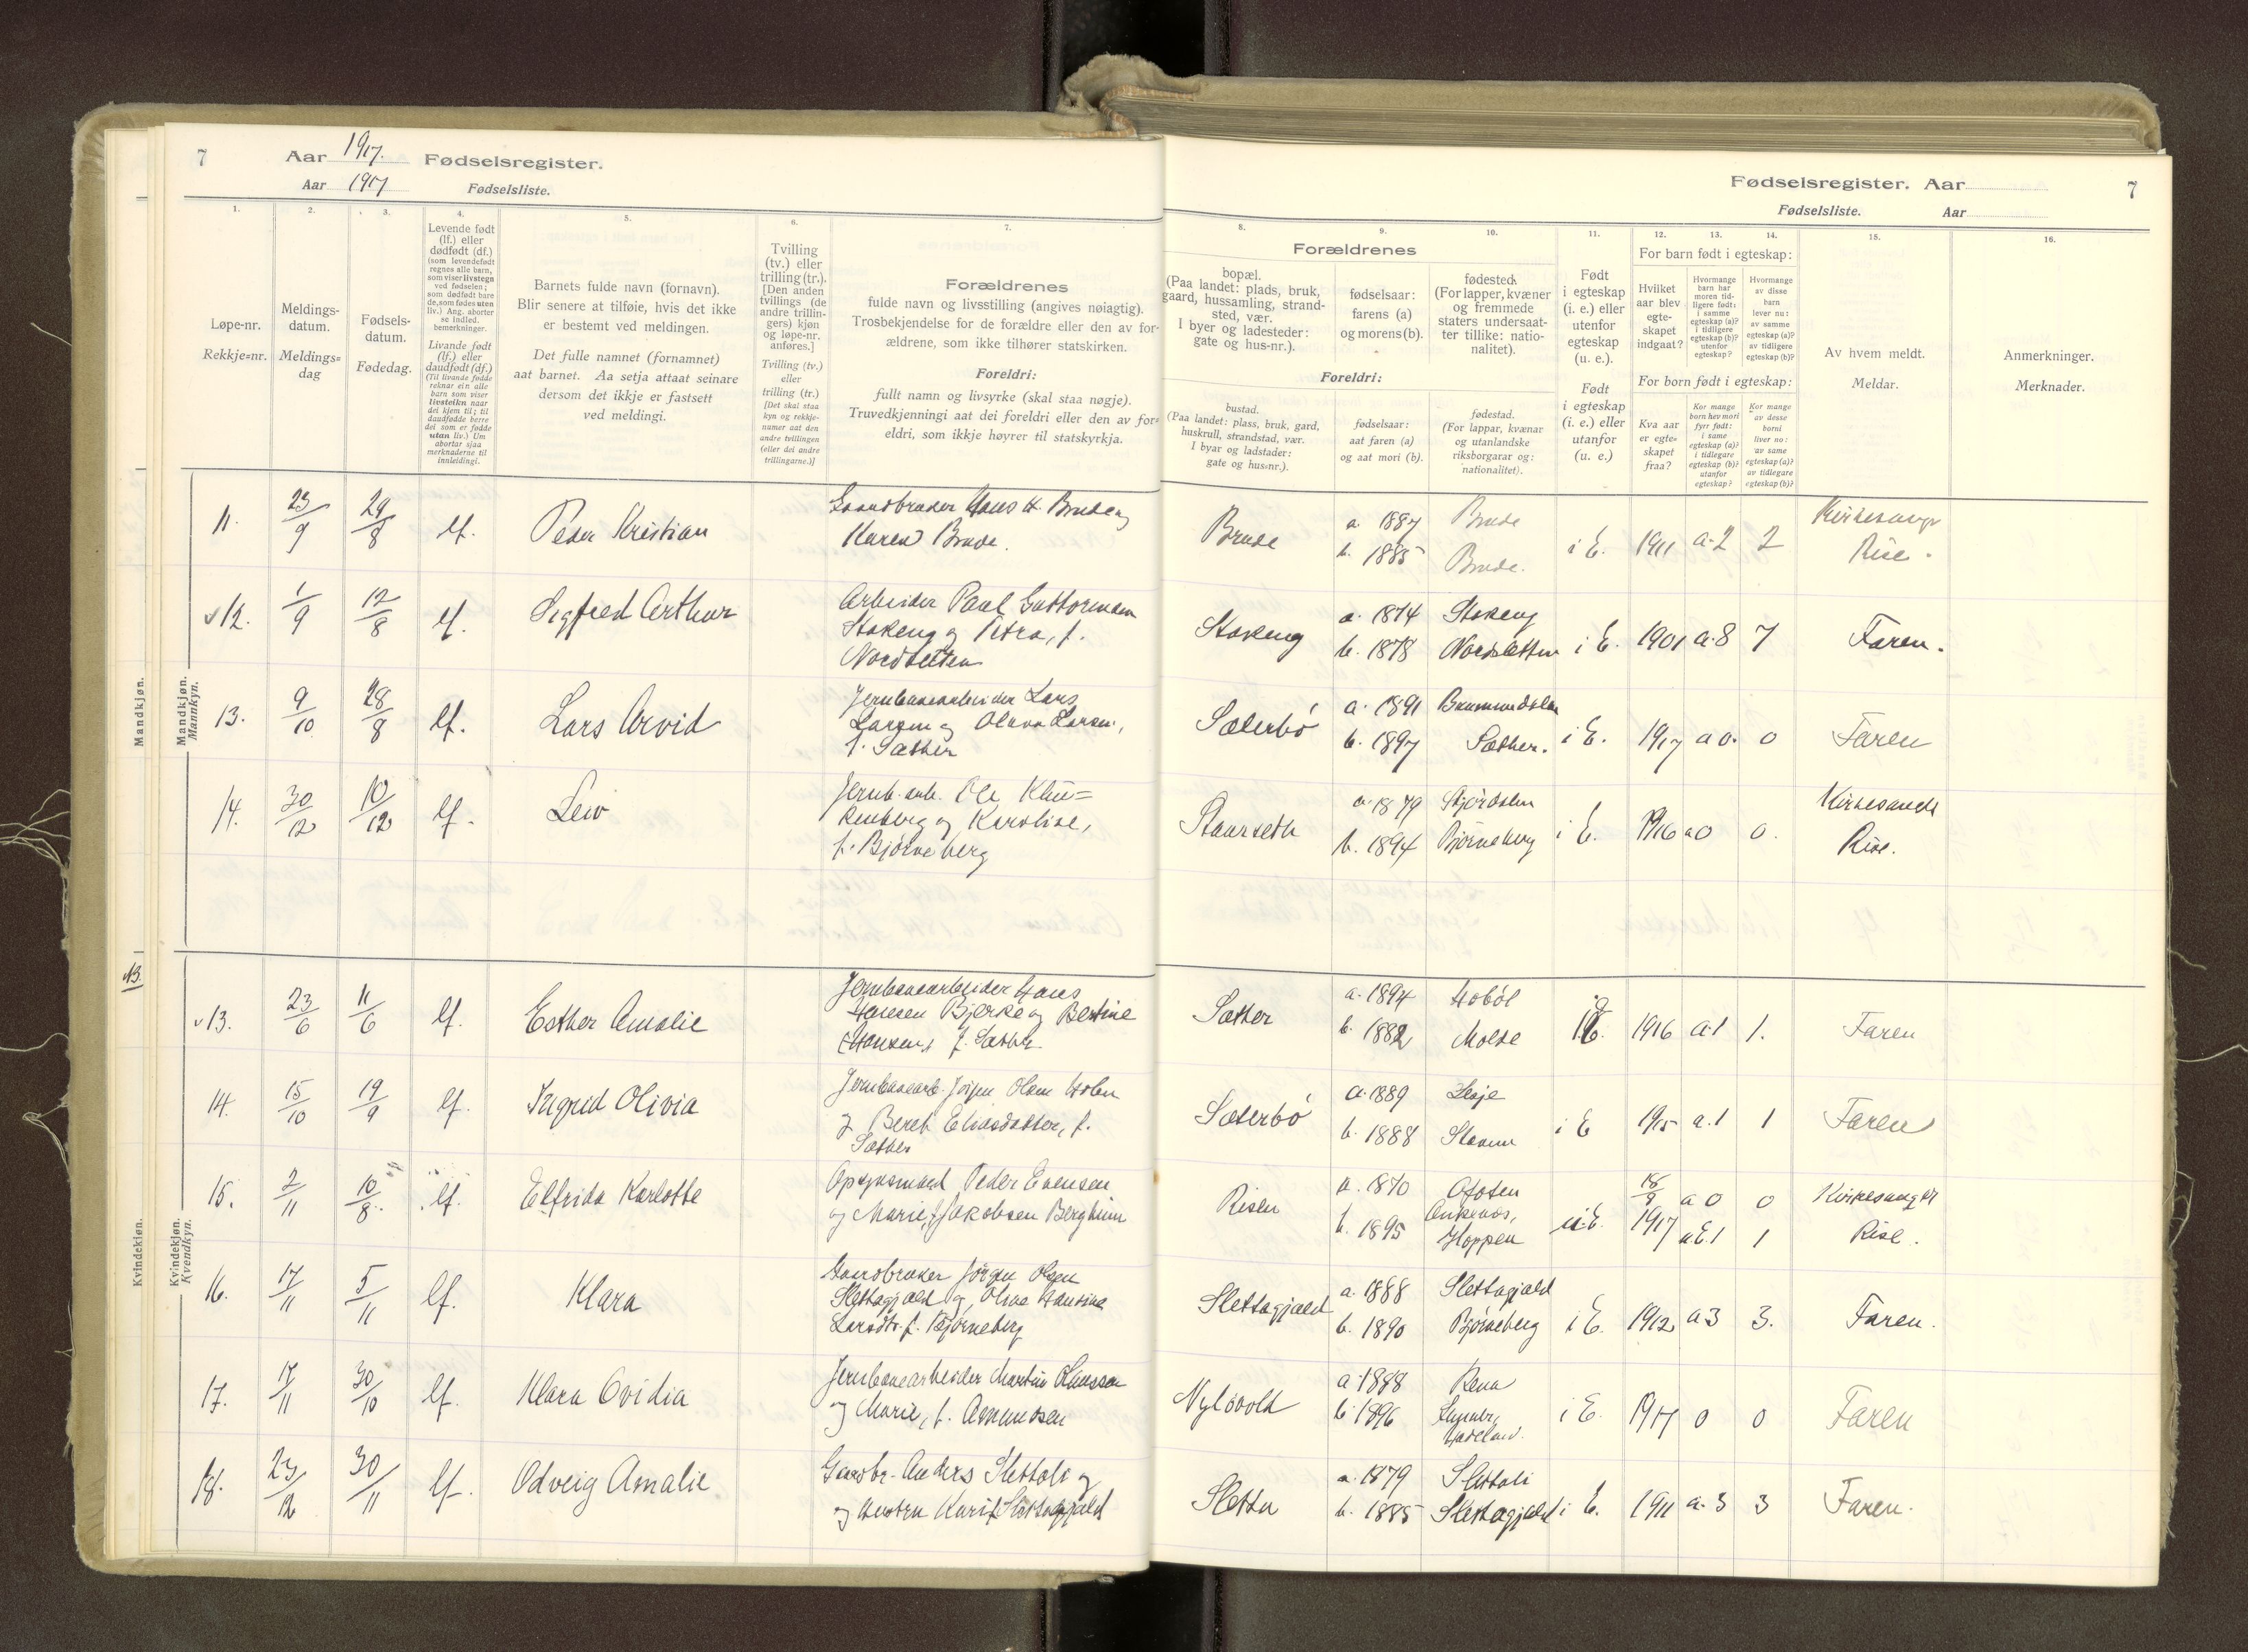 7 Aar 1917. Fødselsregister.
Aar 1917 Fødselsliste.
Fødselsregister. Aar 7
Fødselsliste. Aar
1. 2. 3. 4. 5. 6. 7. 8. 9. 10. 11. 12. 13. 14. 15. 16.
Løpe-nr.
Rekkje=nr.
Meldings-
datum.
Meldings=
dag
Fødsels-
datum.
Fødedag.
Levende født
(lf.) eller
dødfødt (df.)
(som levendefødt
regnes alle barn,
som viser livstegn
ved fødselen;
som dødfødt bare
de, som fødes uten
liv.) Ang. aborter
se indled.
bemerkninger.
Livande født
(lf.) eller
daudfødt (df.)
(Til livande fødde
reknar ein alle
barn som viser
livsteikn naar
dei kjem til; til
daudfødde berre
dei som er fødde
utan liv.) Um
abortar sjaa
merknaderne til
innleidingi.
Barnets fulde navn (fornavn).
Blir senere at tilføie, hvis det ikke
er bestemt ved meldingen.
Det fulle namnet (fornamnet)
aat barnet. Aa setja attaat seinare
dersom det ikkje er fastsett
ved meldingi.
Tvilling
(tv.) eller
trilling (tr.).
[Den anden
tvillings (de
andre trillin-
gers) kjøn
og løpe-nr.
anføres.]
Tvilling (tv.)
eller
trilling (tr.)
[Det skal staa
kyn og rekkje-
numer aat den
andre tvillingen
(eller dei andre
trillingarne.)]
Forældrenes
fulde navn og livsstilling (angives nøiagtig).
Trosbekjendelse for de forældre eller den av for-
ældrene, som ikke tilhører statskirken.
Foreldri:
fullt namn og livsyrke (skal staa nøgje).
Truvedkjenningi aat dei foreldri eller den av for-
eldri, som ikkje høyrer til statskyrkja.
Forældrenes
bopæl.
(Paa landet: plads, bruk,
gaard, hussamling, strand-
sted, vær.
I byer og ladesteder:
gate og hus-nr.).
fødselsaar:
farens (a)
og morens (b).
fødested.
(For lapper, kvæner
og fremmede
staters undersaat-
ter tillike: natio-
nalitet).
Foreldri:
bustad.
(Paa landet: plass, bruk, gard,
huskrull, strandstad, vær.
I byar og ladstader:
gate og hus=nr.).
fødselsaar:
aat faren (a)
og aat mori (b).
fødestad.
(For lappar, kvænar
og utanlandske
riksborgarar og:
nationalitet).
Født
i egteskap
(i. e.) eller
utenfor
egteskap
(u. e.).
Født
i egteskap
(i. e.) eller
utanfor
(u. e.)
For barn født i egteskap:
Hvilket
aar blev
egte-
skapet
indgaat?
Hvormange
barn har
moren tid-
ligere født:
i samme
egteskap (a)?
i tidligere
egteskap (b)?
utenfor
egteskap?
Hvormange
av disse
barn
lever nu:
av samme
egteskap (a)?
av tidligere
egteskap (b)?
For born født i egteskap:
Kva aar
er egte=
skapet
fraa?
Kor mange
born hev mori
fyrr født:
i same
egteskap (a)?
i tidlegare
egteskap (b)?
utanfor
egteskap?
Kor mange
av desse
borni
liver no:
av same
egteskap (a)?
av tidlegare
egteskap (b)?
Av hvem meldt.
Meldar.
Anmerkninger.
Merknader.
Mandkjøn.
Mandkjøn.
Mannkyn.
11. 23/9 29/8 lf. Peder Kristian Gaardbruker Hans H. Brude og
Karen Brude. Brude a 1887 Brude
b. 1885 Brude. i E. 1911 a.2 2 Kirkesanger
Rise.
12. 1/9 12/8 lf. Sigfred Arthur Arbeider Paul Guttormsen
Stokeng og Petra, f.
Nordsletten Stokeng a. 1874 Stokeng
b. 1878 Nordsletten i E. 1901 a.8 7 Faren.
13. 9/10 28/8 lf. Lars Arvid Jernbanearbeider Lars
Larsen og Olava Larsen,
f. Sæther Sæterbö a. 1891 Brumunddalen
b. 1897 Sæther. i E. 1917 a 0. 0 Faren
14. 30/12 10/12 lf. Leiv Jernb. arb. Ole
og Karoline,
f. Bjørneberg Staurseth a. 1879 Stjördalen
b. 1894 Bjørneberg i E. 1916 a 0 0. Kirkesanger
Rise.
NB.
Kvindekjøn.
Kvindekjøn.
Kvendkyn.
13. 23/6 11/6 lf. Esther Amalie Jernbanearbeider Hans
Hansen Bjerke og Bertine
Hansen, f. Sæther Sæther a. 1894 Hobøl
b. 1882 Molde i E. 1916 a.1 1. Faren
14. 15/10 19/9 lf. Ingrid Olivia Jernbanearb. Jörgen Olsen Holen
og Beret Eliasdatter, f.
Sæther Sæterbö a. 1889 Lesje
b. 1888 i E 1915 a.1 1 Faren
15. 2/11 10/8. lf. Elfrida Karlotte Opsynsmand Peder Evensen
og Marie, f. Jakobsen Bergheim Risen a. 1870 Ofoten
b. 1895 Ankenes,
Hoppen u.E. 18/9 1917 a 0 0
u E. 1 1 Kirkesanger
Rise.
16. 17/11 5/11 lf. Klara Gaardbruker Jörgen Olsen
Slettagjæld og Oline Hansine
Larsdtr. f. Bjørneberg Slettagjæld a. 1888 Slettagjæld
b. 1890 Bjørneberg i E. 1912 a 3 3. Faren.
17. 17/11 30/10 lf. Klara Ovidia Jernbanearbeider Martin Klausen
og Marie, f. Asmundsen Nylövold a. 1888 Rena
b. 1896 Lunner,
Hadeland. i E. 1917 0 0 Faren
18. 23/12 30/11 lf. Odveig Amalie Gardbr. Anders Slettali og
og hustru Kari f. Slettagjæld Sletta a. 1879 Slettali
b. 1885 Slettagjæld i E. 1911 a. 3 3 Faren.